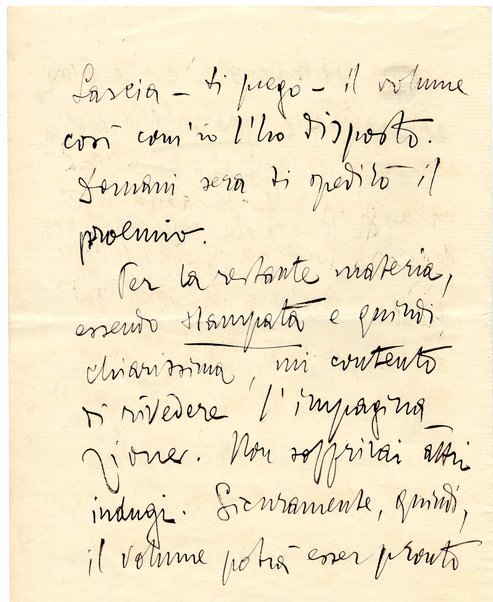 Lascia – ti prego – il volume
così com'io l'ho disposto.
Domani sera ti spedirò il
proemio.
Per la restante materia,
essendo stampata e quindi
chiarissima, mi contento
di rivedere l'impagina
zione. Non soffrirai altri
indugi. Sicuramente, quindi,
il volume potrà esser pronto